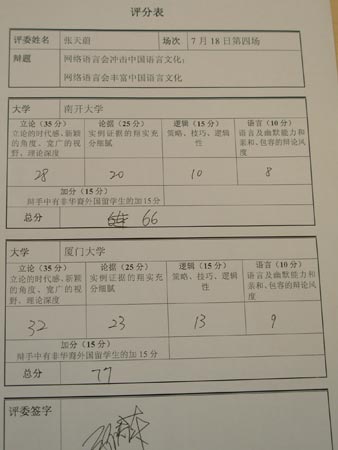 评分表
评委姓名 张天蔚 场次 7月18日第四场
辩题 网络语言会冲击中国语言文化;
网络语言会丰富中国语言文化
大学 南开大学
立论(35分) 论据(25分) 逻辑(15分) 语言(10分)
立论的时代感、新颖 实例证据的翔实充 策略、技巧、逻辑 语言及幽默能力和
的角度、宽广的视 分细腻 性 亲和、包容的辩论风
野、理论深度 度
28 20 10 8
加分(15分)
辩手中有非华裔外国留学生的加15分
总分 66
大学 厦门大学
立论(35分) 论据(25分) 逻辑(15分) 语言(10分)
立论的时代感、新颖 实例证据的翔实充 策略、技巧、逻辑 语言及幽默能力和
的角度、宽广的视 分细腻 性 亲和、包容的辩论风
野、理论深度 度
32 23 13 9
加分(15分)
辩手中有非华裔外国留学生的加15分
总分 77
评委签字